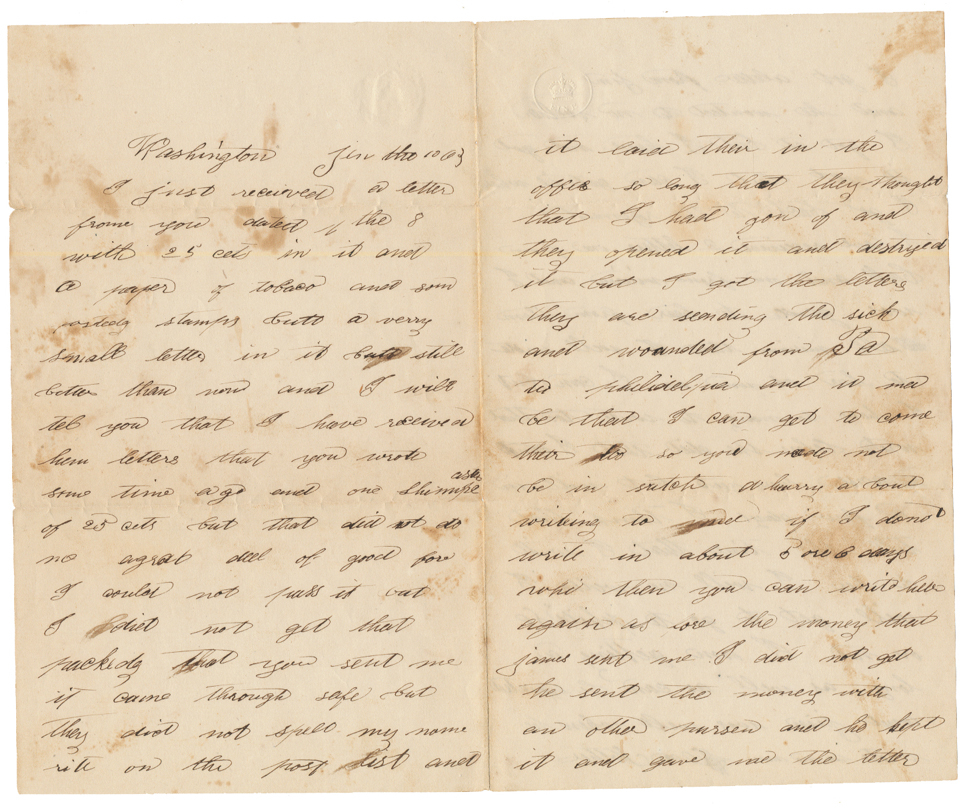 Washington Jin the 10 63
I just received a letter
frome you dated the 8
with 25 cets in it and
a paper of tobaco and som
postedg stamps butt a verry
small letter in it but still
better than non and I will
tel you that I have received
them letters that you wrote
some time ago and one shinnplaster
of 25 cets but that did not do
no agreat deel of good for
I could not pass it but
I did not get that
packedg that you sent me
it came through safe but
they did not spell my name
rite on the post list and
it laid their in the
offes so long that they thought
that I had gon of and
they opened it and destryed
it but I got the letters
they are sending the sick
and wounded from
to philidelpia and it ma
be that I can get to come
their too so you nede not
be in sutch a hurry a bout
writing to if I donot
write in about 5 ore 6 days
whi then you can write here
again as fore the money that
james sent me I did not get
he sent the money with
an other pursen and he kept
it and gave me the letter